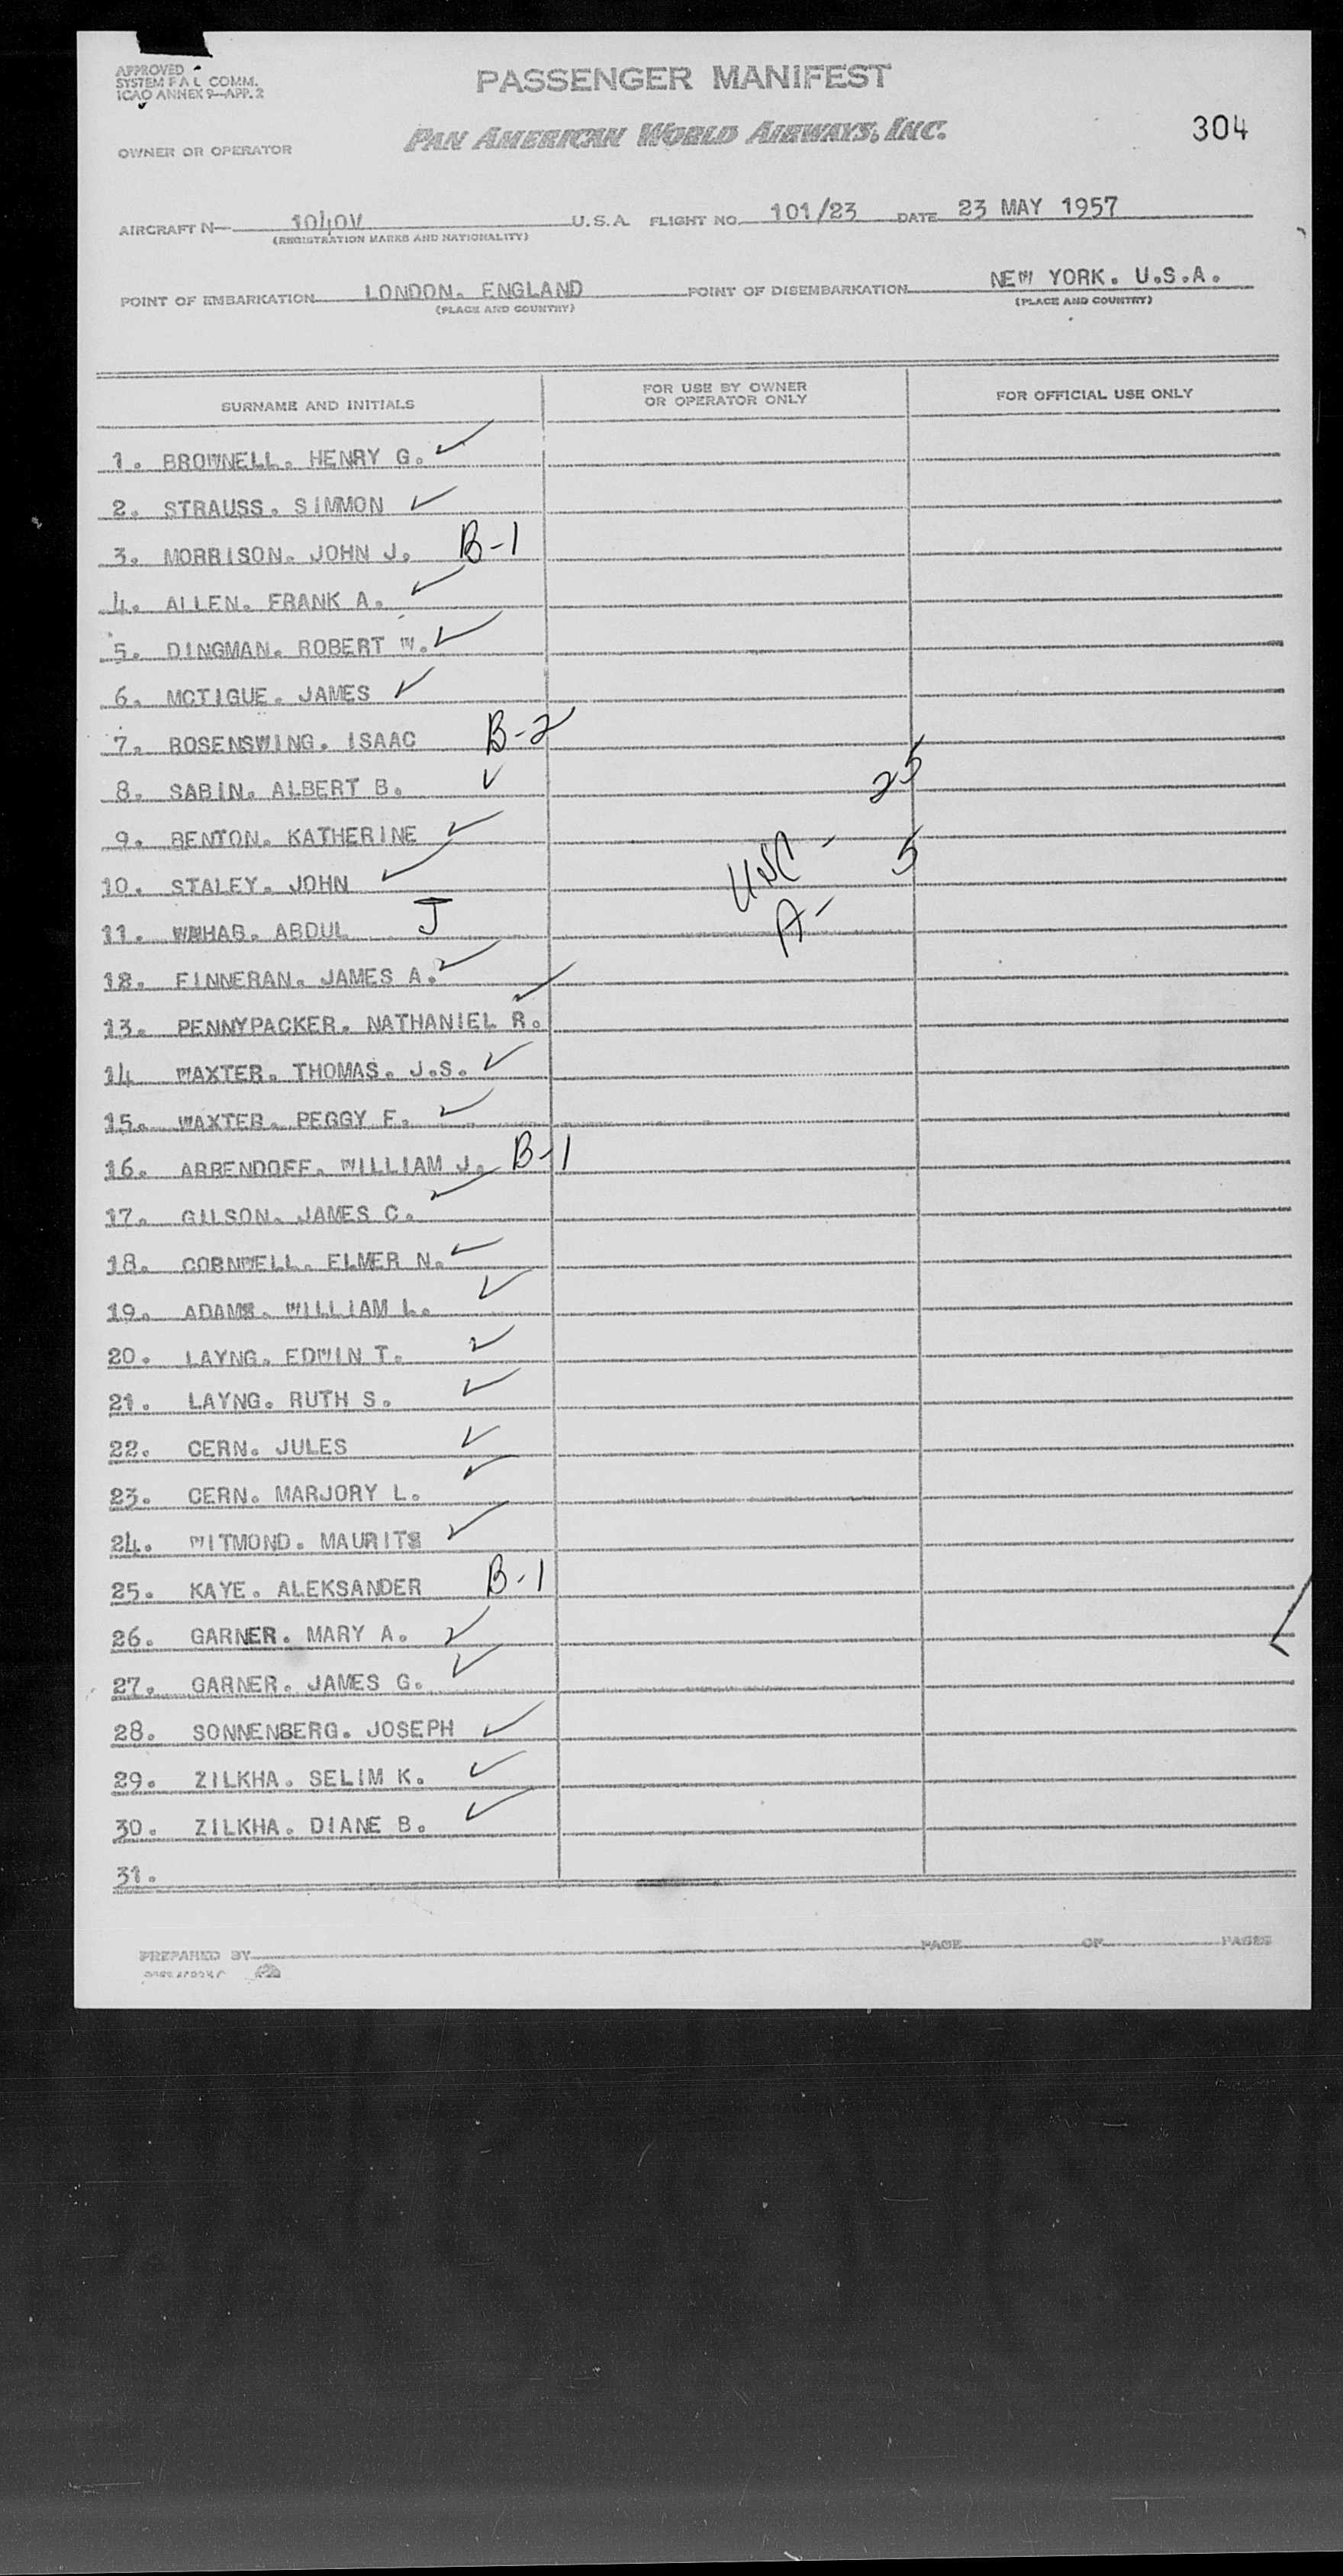 APPROVED
SYSTEM F A L COMM.
ICAO ANNEX 9—APP. 2
PASSENGER MANIFEST
PAN AMERICAN WORLD AIRWAYS, INC.
304
OWNER OR OPERATOR
AIRCRAFT N— 1040V U.S.A. FLIGHT NO. 101/23 DATE 23 MAY 1957
(REGISTRATION MARKS AND NATIONALITY)
POINT OF EMBARKATION LONDON. ENGLAND POINT OF DISEMBARKATION NEW YORK. U.S.A.
(PLACE AND COUNTRY) (PLACE AND COUNTRY)
SURNAME AND INITIALS FOR USE BY OWNER OR OPERATOR ONLY FOR OFFICIAL USE ONLY
1. BROWNELL. HENRY G. ✓
2. STRAUSS. SIMMON ✓
3. MORRISON. JOHN J. B-1
4. ALLEN. FRANK A. ✓
5. DINGMAN. ROBERT W. ✓
6. MCTIGUE. JAMES ✓
7. ROSENSWING. ISAAC B-2
8. SABIN. ALBERT B. ✓ 25
9. BENTON. KATHERINE ✓
10. STALEY. JOHN ✓ USC - 5
11. WAHAB. ABDUL J A -
12. FINNERAN. JAMES A. ✓
13. PENNYPACKER. NATHANIEL R. ✓
14 WAXTER. THOMAS. J.S. ✓
15. WAXTER. PEGGY F. ✓
16. ARBENDOFF. WILLIAM J. B-1
17. GILSON. JAMES C. ✓
18. CORNWELL. ELMER N. ✓
19. ADAMS. WILLIAM L. ✓
20. LAYNG. EDWIN T. ✓
21. LAYNG. RUTH S. ✓
22. CERN. JULES ✓
23. CERN. MARJORY L. ✓
24. WITMOND. MAURITS ✓
25. KAYE. ALEKSANDER B-1
26. GARNER. MARY A. ✓
27. GARNER. JAMES G. ✓
28. SONNENBERG. JOSEPH ✓
29. ZILKHA. SELIM K. ✓
30. ZILKHA. DIANE B. ✓
31.
PREPARED BY PAGE OF PAGES